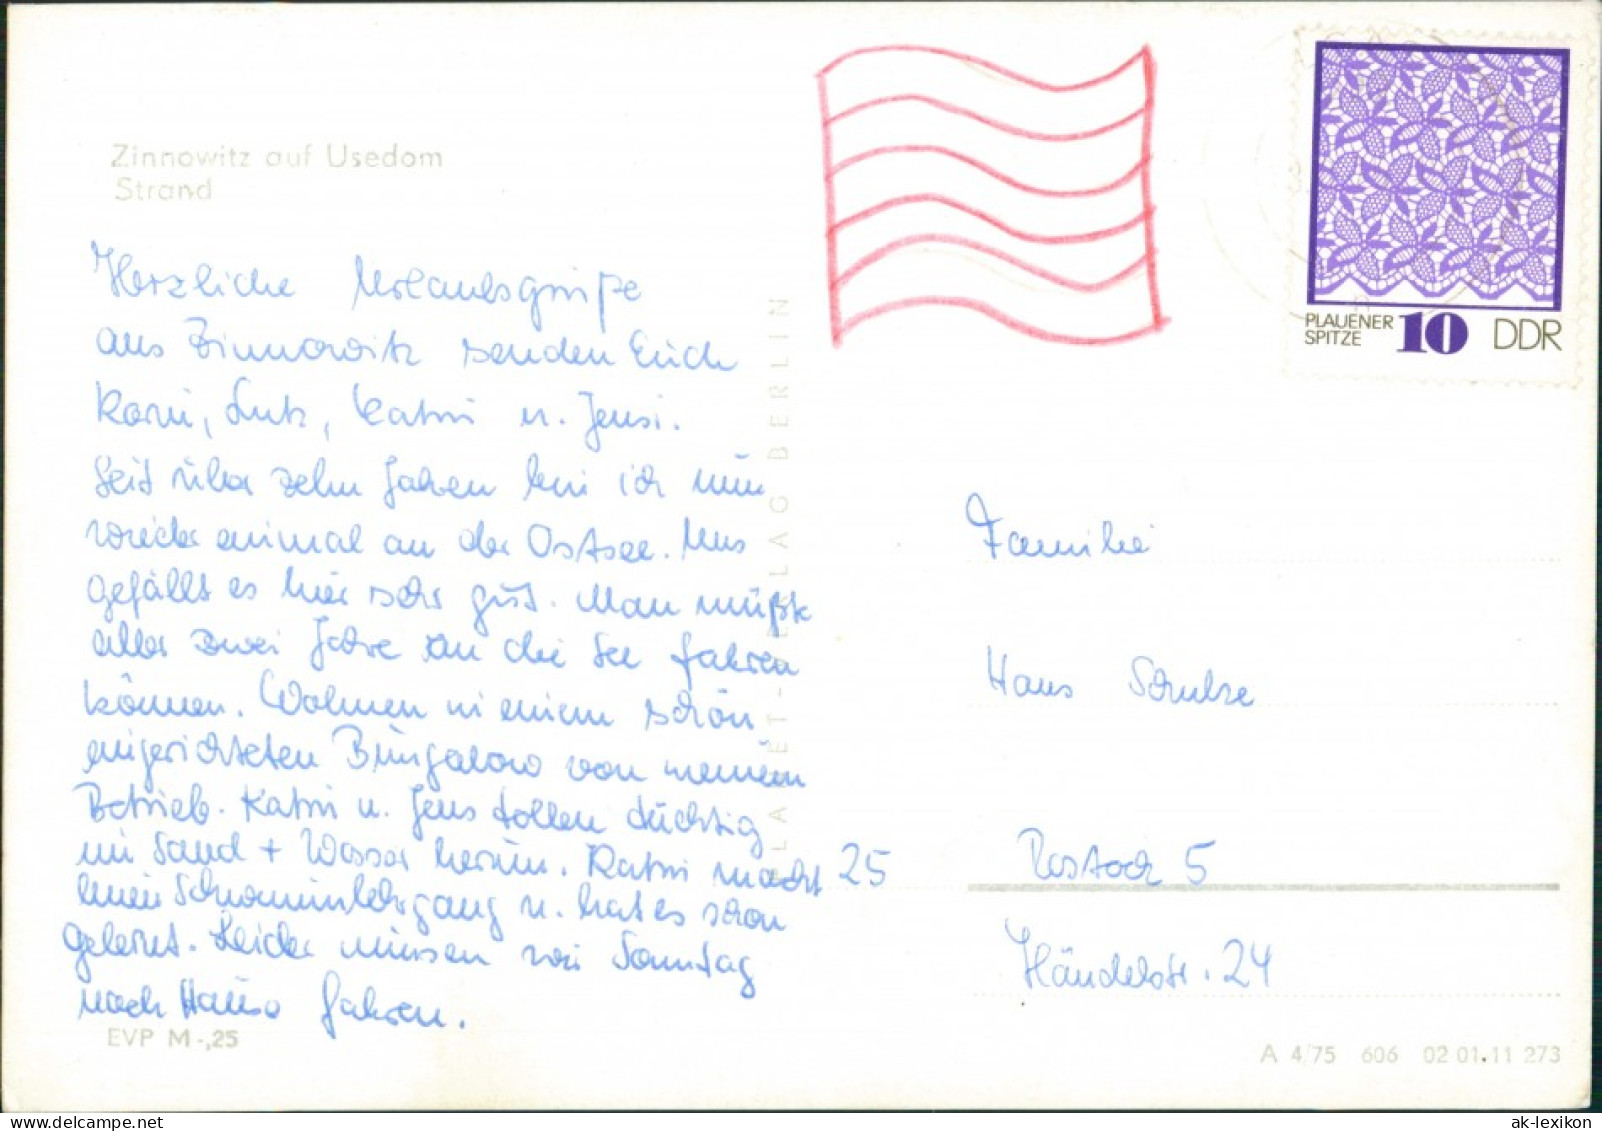 Zinnowitz auf Usedom
Strand
Herzliche Urlaubsgrüße
aus Zinnowitz senden Euch
Karin, Lutz, Katrin u. Jensi.
Seit über zehn Jahren bin ich nun
wieder einmal an der Ostsee. Uns
gefällt es hier sehr gut. Man müßte
aller zwei Jahre an die See fahren
können. Wohnen in einem schön
eingerichteten Bungalow von meinem
Betrieb. Katrin u. Jens tollen tüchtig
im Sand + Wasser herum. Katrin macht
einen Schwimmlehrgang u. hat es schon
gelernt. Leider müssen wir Sonntag
nach Hause fahren.
EVP M -,25
BERLIN
PLAUENER
SPITZE 10 DDR
Familie
Hans Schulze
25 Rostock 5
Händelstr. 24
A 4/75 606 02 01.11 273
ak-lexikon